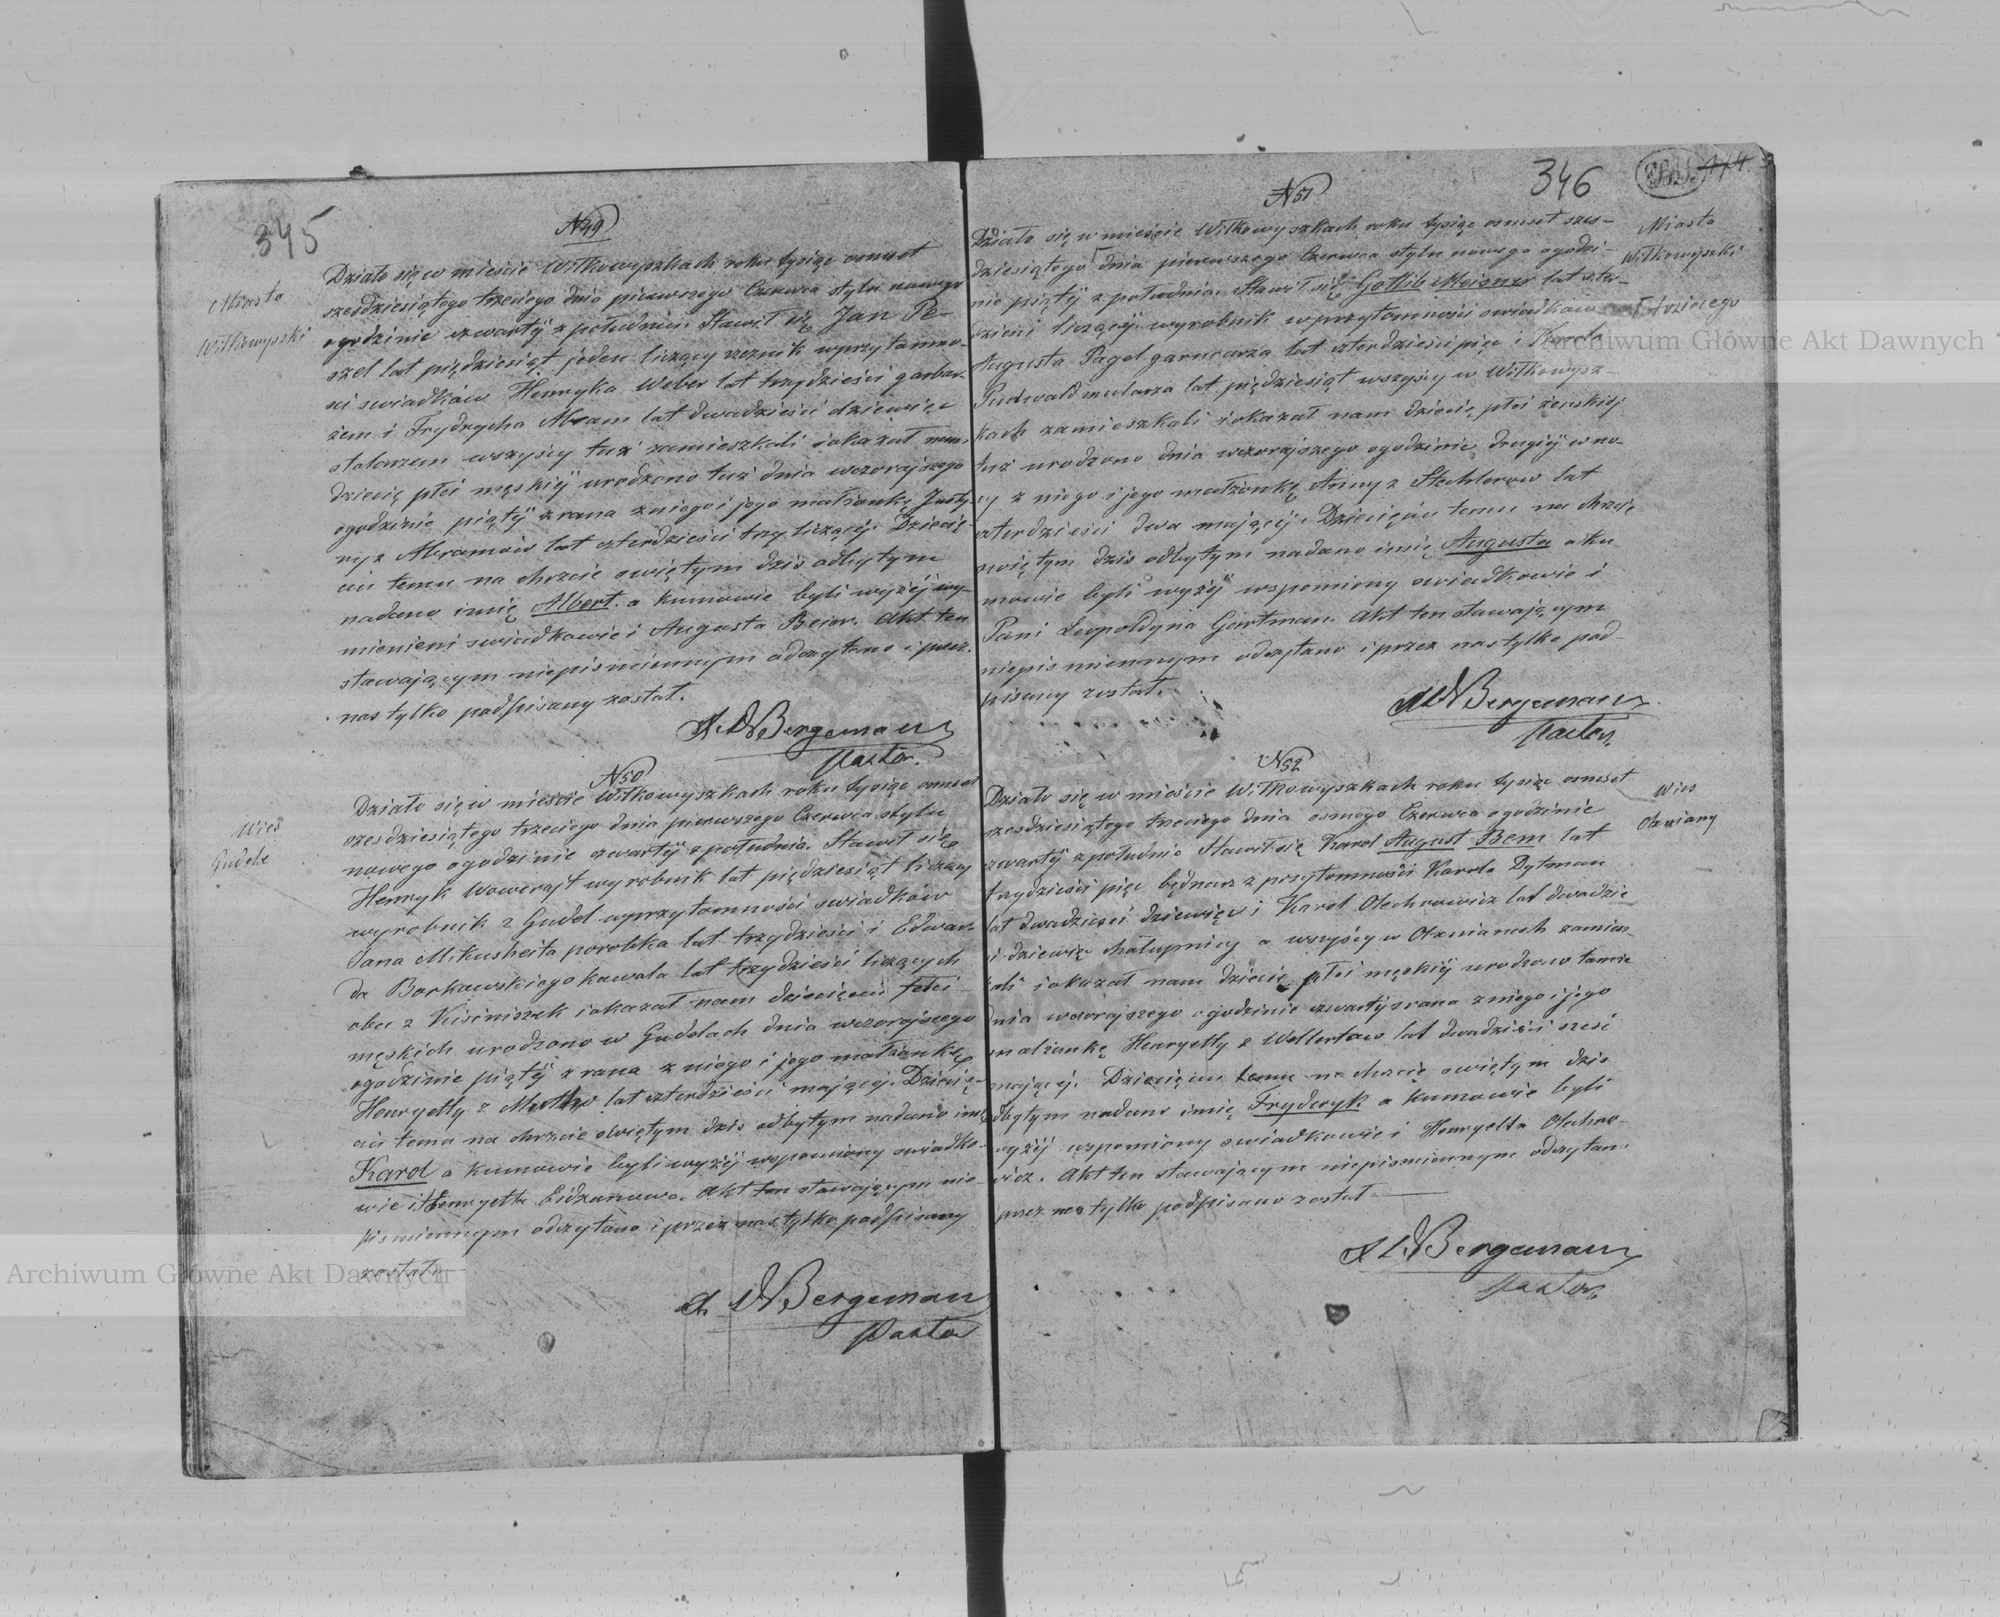 345
N 49
Miasto
Wiłkowyszki
Działo się w mieście Wiłkowyszkach roku tysiąc osmset
szesdziesiątego trzeciego dnia pierwszego Czerwca stylu nowego
ogodzinie czwartÿ z południa. Stawił się Jan Pe-
szel lat pięćdziesiąt jeden liczący rzeznik wprzytomno-
sci swiadków Henryka Weber lat trzydzieści garbar-
żem i Frydrycha Abram lat dwadzieści dziewięc
stolarzem wszyscy tuż zamieszkali i okazał nam
dziecię płci męskiÿ urodzono tuż dnia wczorajszego
ogodzinie piątÿ zrana zniego i jego małżonkę Justy-
ny z Abramów lat czterdzieści trzy liczącéj. Dziecię-
ciu temu na chrzcie swiętym dziś odbytym
nadano imię Albert. a kumowie byli wyżéj wy-
mienieni swiadkowie i Augusta Beier. Akt ten
stawającym niepismiennym odczytano i przez
nas tylko podpisany został.
Bergemann
Pastor.
N 50
Wies
Gudele
Działo się w mieście Wiłkowyszkach roku tysiąc osmset
szesdziesiątego trzeciego dnia pierwszego Czerwca stylu
nowego ogodzinie czwartÿ z południa. Stawił się
Henryk Wowerajt wyrobnik lat pięćdziesiąt liczący
wyrobnik z Gudel wprzytomności swiadków
Jana Mikusheita porobka lat trzydzieści i Edwar-
da Borkowskiego kowala lat trzydzieści liczących
obu z i okazał nam dziecięciu płci
męskich urodzono w Gudelach dnia wczorajszego
ogodzinie piątÿ z rana z niego i jego małżonkę
Henryetty z lat czterdzieści mającéj. Dziecię-
ciu temu na chrzcie swiętym dziś odbytym nadano imię
Karol a kumowie byli wyżÿ wspomiony swiadko-
wie i Henryetta. Akt ten stawającym nie-
pismiennym odczytano i przez nas tylko podpisany
został.
Bergeman
Pastor
346
N 51
Miasto
Wiłkowyszki
Działo się w mieście Wiłkowyszkach roku tysiąc osmset szes-
dziesiątego ⌈ dnia pierwszego Czerwca stylu nowego ogodzi-
⌈ trzeciego
nie piątÿ z południa. Stawił się Gotlib Meisner lat czter-
dzieści liczącÿ wyrobnik wprzytomności swiadków
Augusta Pagel garncarza lat czterdzieści pięc i Karola
Pudwald mularza lat pięćdziesiąt wszyscy w Wiłkowysz-
kach zamieszkali i okazał nam dziecię płci żeńskiéj
tuż urodzono dnia wczorajszego ogodzinie drugiÿ w no-
cy z niego i jego małżonkę Anny z Stechlerow lat
czterdzieści dwa mającÿ. Dziecięciu temu na chrzcie
swiętym dziś odbytym nadano imię Augusta a ku-
mowie byli wyżÿ wspomiony swiadkowie i
Pani Leopoldyna Gartman. Akt ten stawającym
niepismiennym odczytano i przez nas tylko pod-
pisany został.
Bergemann
Pastor.
N 52
Wies
Ożwiany
Działo się w mieście Wiłkowyszkach roku tysiąc osmset
szesdziesiątego trzeciego dnia osmego Czerwca ogodzinie
czwartÿ z południa Stawił się Karol August Bem lat
trzydzieści pięc będnarz z przytomności Karola Dytman
lat dwadzieści dziewięc i Karol Olechnowicz lat dwadzie-
ści dziewięc chałupnicy a wszyscy w Ożwianach zamiesz-
kali i okazał nam dziecię płci męskiÿ urodzono tamże
dnia wczorajszego ogodzinie czwartÿ zrana zniego i jego
małżonkę Henryetty z lat dwadzieści szesć
mającéj. Dziecięciu temu na chrzcie swiętym dziś
odbytym nadano imię Fryderyk a kumowie byli
wyżÿ wspomiony swiadkowie i Henryetta Olechno-
wicz. Akt ten stawającym niepismiennym odczytano
przez nas tylko podpisano został.
Bergemann
Pastor.
Archiwum Główne Akt Dawnych
Archiwum Główne Akt Dawnych